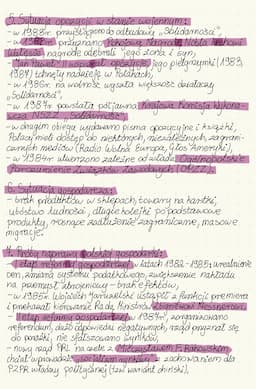 5. Sytuacja opozycji w stanie wojennym:
- w 1983r. przystąpiono do odbudowy „Solidarności",
- w 1983r. przyznano Pokojową Nagrodę Nobla Lechowi
Wałęsie nagrodę odebrali jego żona i syn,
- Jan Paweł II wspierał opozycję, jego pielgrzymki (1983,
1987) tchnęły nadzieję w Polakach,
- w 1986r. na wolność wyszła większość działaczy
„Solidarności",
- w 1987r. powstała półjawna Krajowa Komisja Wykona-
wcza NSZZ „Solidarność",
- w drugim obiegu wydawano pisma opozycyjne i książki,
Polacy mieli dostęp do niektórych, niezależnych, zagrani-
cznych mediów (Radio Wolna Europa, Głos Ameryki),
- w 1984r. utworzono zależne od władz Ogólnopolskie
Porozumienie Związków Zawodowych (OPZZ).
6. Sytuacja gospodarcza:
- brak produktów w sklepach, towary na kartki,
ubóstwo ludności, długie kolejki po podstawowe
produkty, rosnące zadłużenie zagraniczne, masowe
migracje.
7. Próby naprawy polskiej gospodarki:
- I etap reformy gospodarczej w latach 1982-1985; urealnienie
cen, zmiana systemu podatkowego, zwiększenie nakładu
na przemysł zbrojeniowy - brak efektów,
- w 1985r. Wojciech Jaruzelski ustąpił z funkcji premiera
i przekazał kierowanie Radą Ministrów Zbigniewowi Messnerowi,
- II etap reformy gospodarczej w 1987r., zorganizowano
referendum, dużo odpowiedzi negatywnych, rząd przyznał się
do porażki, nie sfałszowano wyników,
- nowy rząd PRL na czele z Mieczysławem F. Rakowskim
chciał wprowadzić socjalizm rynkowy z zachowaniem dla
PZPR władzy politycznej (tzw. wariant chiński),